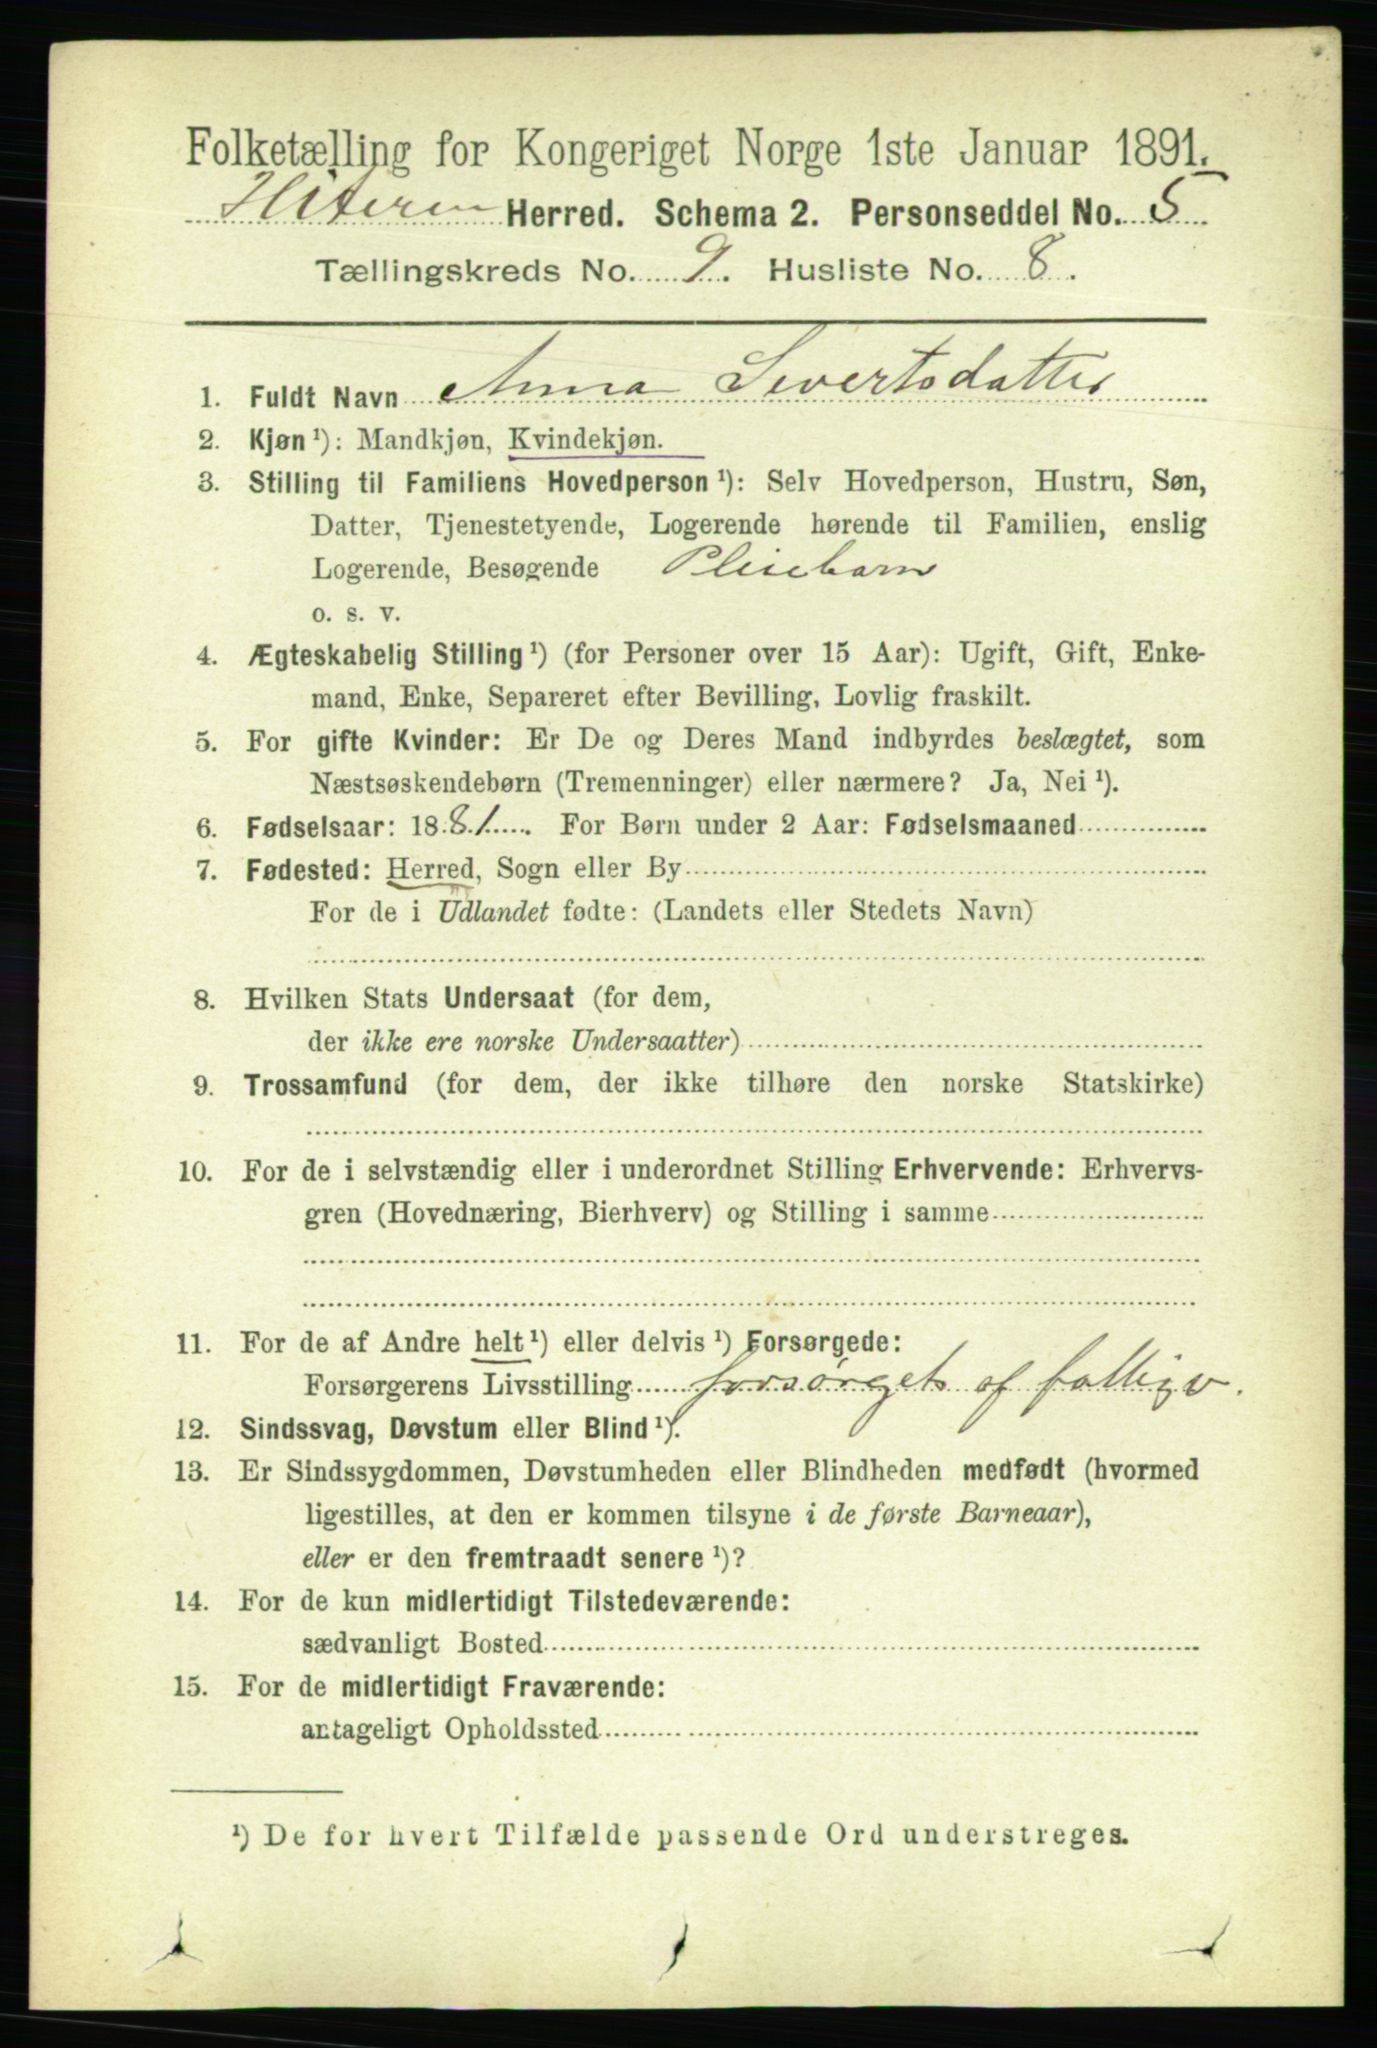 Folketælling for Kongeriget Norge 1ste Januar 1891.
Hiteren Herred. Schema 2. Personseddel No. 5
Tællingskreds No. 9. Husliste No. 8.
1. Fuldt Navn Anna Sivertsdatter
2. Kjøn ¹): Mandkjøn, Kvindekjøn.
3. Stilling til Familiens Hovedperson ¹): Selv Hovedperson, Hustru, Søn,
Datter, Tjenestetyende, Logerende hørende til Familien, enslig
Logerende, Besøgende Pleiebarn
o. s. v.
4. Ægteskabelig Stilling ¹) (for Personer over 15 Aar): Ugift, Gift, Enke-
mand, Enke, Separeret efter Bevilling, Lovlig fraskilt.
5. For gifte Kvinder: Er De og Deres Mand indbyrdes beslægtet, som
Næstsøskendebørn (Tremenninger) eller nærmere? Ja, Nei ¹).
6. Fødselsaar: 1881. For Børn under 2 Aar: Fødselsmaaned
7. Fødested: Herred, Sogn eller By
For de i Udlandet fødte: (Landets eller Stedets Navn)
8. Hvilken Stats Undersaat (for dem,
der ikke ere norske Undersaatter)
9. Trossamfund (for dem, der ikke tilhøre den norske Statskirke)
10. For de i selvstændig eller i underordnet Stilling Erhvervende: Erhvervs-
gren (Hovednæring, Bierhverv) og Stilling i samme
11. For de af Andre helt ¹) eller delvis ¹) Forsørgede:
Forsørgerens Livsstilling forsørget af fattigv.
12. Sindssvag, Døvstum eller Blind ¹).
13. Er Sindssygdommen, Døvstumheden eller Blindheden medfødt (hvormed
ligestilles, at den er kommen tilsyne i de første Barneaar),
eller er den fremtraadt senere ¹)?
14. For de kun midlertidigt Tilstedeværende:
sædvanligt Bosted
15. For de midlertidigt Fraværende:
antageligt Opholdssted
¹) De for hvert Tilfælde passende Ord understreges.